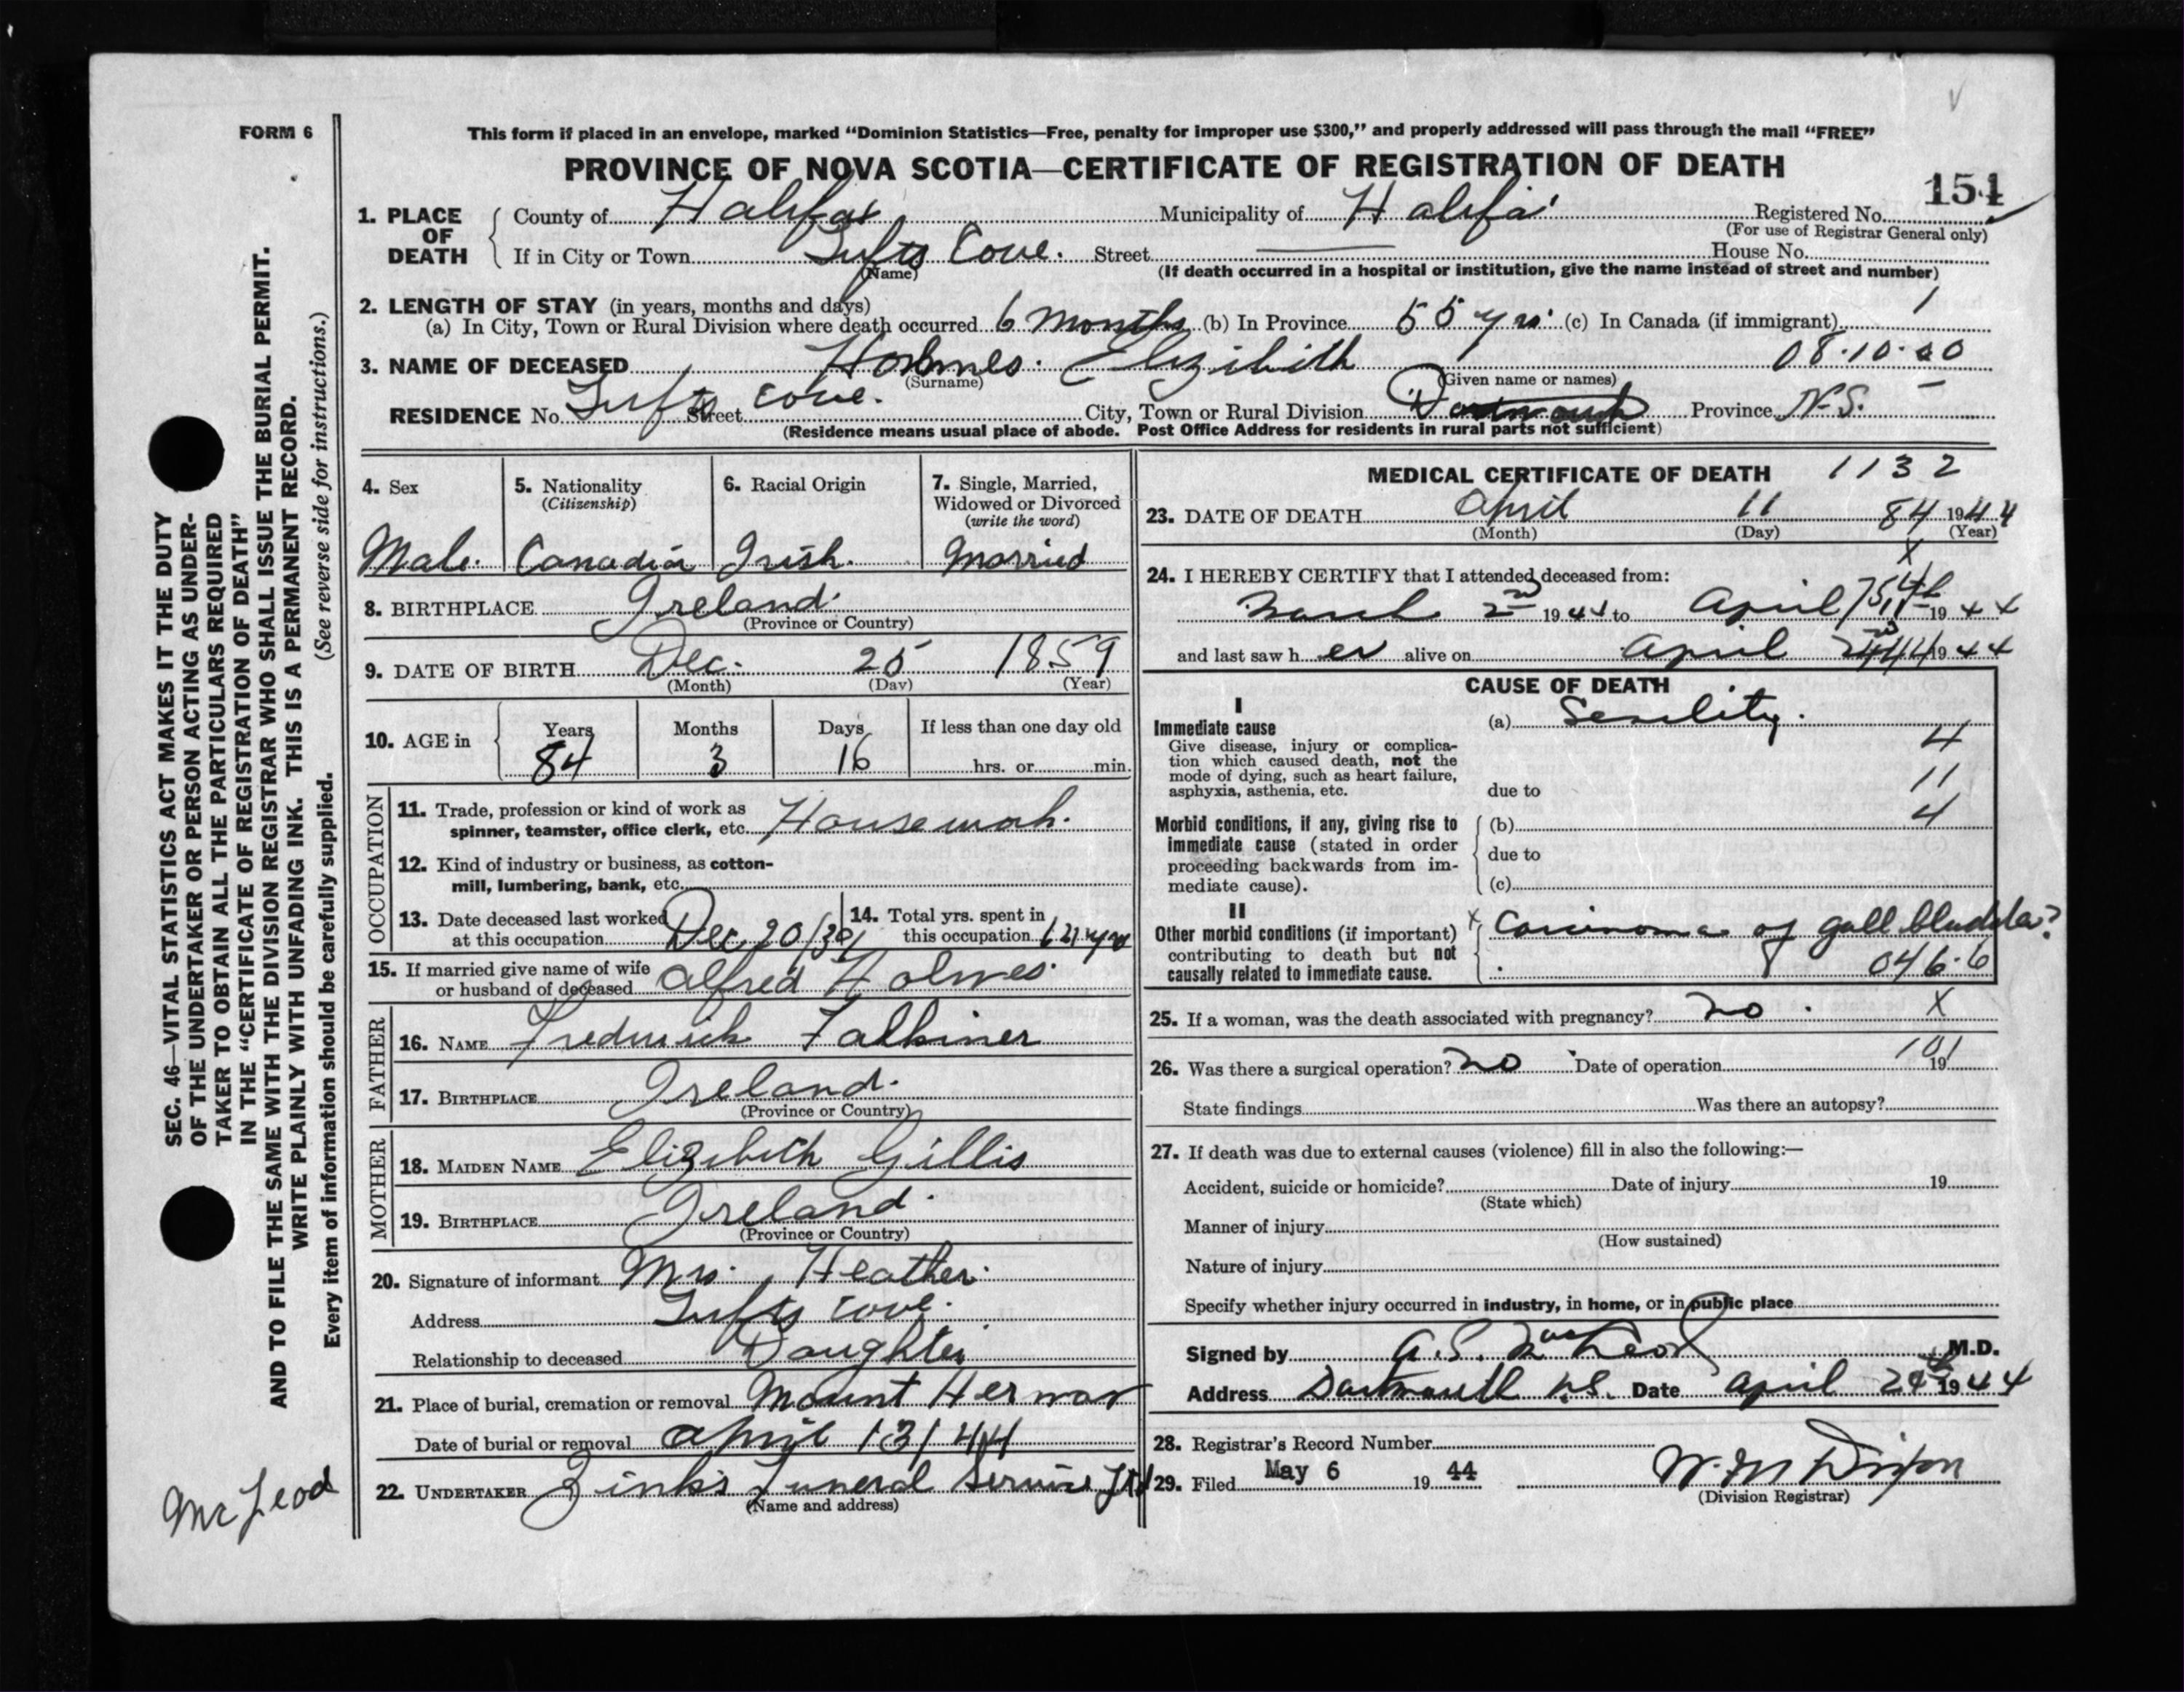 FORM 6
This form if placed in an envelope, marked “Dominion Statistics—Free, penalty for improper use $300,” and properly addressed will pass through the mail “FREE”
PROVINCE OF NOVA SCOTIA—CERTIFICATE OF REGISTRATION OF DEATH
151
1. PLACE OF DEATH
County of Halifax Municipality of Halifax Registered No.
(For use of Registrar General only)
If in City or Town Tufts Cove. Street House No.
(Name)
(If death occurred in a hospital or institution, give the name instead of street and number)
2. LENGTH OF STAY (in years, months and days)
(a) In City, Town or Rural Division where death occurred 6 Months (b) In Province 55 yrs. (c) In Canada (if immigrant) 1
3. NAME OF DECEASED Holmes. Elizibith 08.10.00
(Surname) (Given name or names)
RESIDENCE No. Tufts Cove. Street City, Town or Rural Division Dartmouth Province N.S.
(Residence means usual place of abode. Post Office Address for residents in rural parts not sufficient)
4. Sex
Male.
5. Nationality
(Citizenship)
Canadia
6. Racial Origin
Irish.
7. Single, Married,
Widowed or Divorced
(write the word)
Married
8. BIRTHPLACE Ireland.
(Province or Country)
9. DATE OF BIRTH Dec. 25 1859
(Month) (Day) (Year)
10. AGE in Years Months Days If less than one day old
84 3 16 hrs. or min.
OCCUPATION
11. Trade, profession or kind of work as
spinner, teamster, office clerk, etc. Housework.
12. Kind of industry or business, as cotton-
mill, lumbering, bank, etc.
13. Date deceased last worked
at this occupation Dec 20/39
14. Total yrs. spent in
this occupation
15. If married give name of wife
or husband of deceased Alfred Holmes.
FATHER
16. NAME Frederick Falkiner
17. BIRTHPLACE Ireland.
(Province or Country)
MOTHER
18. MAIDEN NAME Elizibith Gillis
19. BIRTHPLACE Ireland.
(Province or Country)
20. Signature of informant Mrs. Heather.
Address Tufts Cove.
Relationship to deceased Daughter
21. Place of burial, cremation or removal Mount Hermon
Date of burial or removal April 13/44
22. UNDERTAKER Zink's Funeral Service Ltd
(Name and address)
MEDICAL CERTIFICATE OF DEATH 1132
23. DATE OF DEATH April 11 84 1944
(Month) (Day) (Year)
X
24. I HEREBY CERTIFY that I attended deceased from:
March 2nd 1944 to April 1944
and last saw h er alive on April 1944
CAUSE OF DEATH
I
Immediate cause
Give disease, injury or complica-
tion which caused death, not the
mode of dying, such as heart failure,
asphyxia, asthenia, etc.
(a) Senility.
4
11
due to
4
Morbid conditions, if any, giving rise to
immediate cause (stated in order
proceeding backwards from im-
mediate cause).
(b)
due to
(c)
II
Other morbid conditions (if important)
contributing to death but not
causally related to immediate cause.
x Carcinoma of gall bladder?
046.6
25. If a woman, was the death associated with pregnancy? no. X
26. Was there a surgical operation? no Date of operation 19
101
State findings Was there an autopsy?
27. If death was due to external causes (violence) fill in also the following:—
Accident, suicide or homicide? Date of injury 19
(State which)
Manner of injury
(How sustained)
Nature of injury
Specify whether injury occurred in industry, in home, or in public place
Signed by A.S. MacLeod M.D.
Address Dartmouth N.S. Date April 24th 1944
28. Registrar's Record Number
29. Filed May 6 1944 W. M Dixon
(Division Registrar)
SEC. 46—VITAL STATISTICS ACT MAKES IT THE DUTY
OF THE UNDERTAKER OR PERSON ACTING AS UNDER-
TAKER TO OBTAIN ALL THE PARTICULARS REQUIRED
IN THE “CERTIFICATE OF REGISTRATION OF DEATH”
AND TO FILE THE SAME WITH THE DIVISION REGISTRAR WHO SHALL ISSUE THE BURIAL PERMIT.
WRITE PLAINLY WITH UNFADING INK. THIS IS A PERMANENT RECORD.
(See reverse side for instructions.)
Every item of information should be carefully supplied.
McLeod